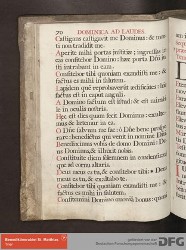 70 DOMINICA AD LAUDES.
Castigans castigavit me Dominus: & morti
non tradidit me.
Aperite mihi portas justitiæ; ingressus in
eas confitebor Domino: hæc porta Domini,
justi intrabunt in eam.
Confitebor tibi quoniam exaudisti me: &
factus es mihi in salutem.
Lapidem quem reprobaverunt ædificantes: hic
factus est in caput anguli.
A Domino factum est istud: & est mirabile
in oculis nostris.
Hæc est dies quam fecit Dominus: exultemus
& lætemur in ea.
O Domine salvum me fac: ô Domine bene prosperare:
benedictus qui venit in nomine Domini.
Benediximus vobis de domo Domini: Deus
Dominus, & illuxit nobis.
Constituite diem solemnem in condensis: usque
ad cornu altaris.
Deus meus es tu, & confitebor tibi: Deus
meus es tu, & exaltabo te.
Confitebor tibi quoniam exaudisti me: &
factus es mihi in salutem.
Confitemini Domino quoniam bonus: quoniam
DFG